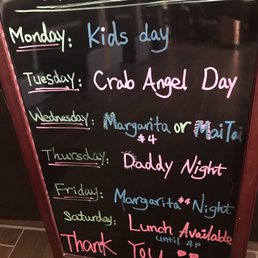 Monday: Kids day
Tuesday: Crab Angel Day
Wednesday: Margarita or MaiTai
$4
Thursday: Daddy Night
Friday: Margarita $4 Night
Saturday: Lunch Available
until 4P
Thank You